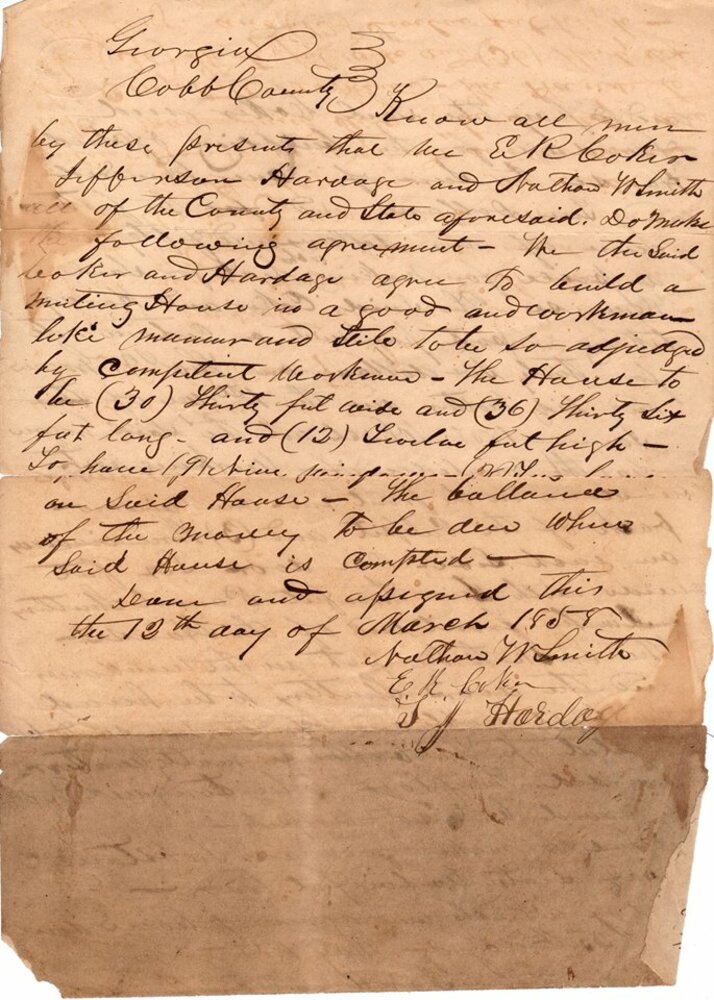 Georgia
Cobb County Know all men
by these presents that we E R Coker
Jefferson Hardage and Nathan W Smith
all of the County and State aforesaid. Do make
the following agreement – We the Said
Coker and Hardage agree To build a
meting House in a good and workman
like manner and Stile to be so adjudged
by Competent Workmen – The House to
be (30) Thirty fut wise and (36) Thirty Six
fut long – and (12) Twelve fut high –
To have (9) Nine
on Said House – The ballance
of the money to be due When
Said House is Compted –
and asigned this
the 12th day of March 1858
Nathan W Smith
E R Coker
T J Hardage